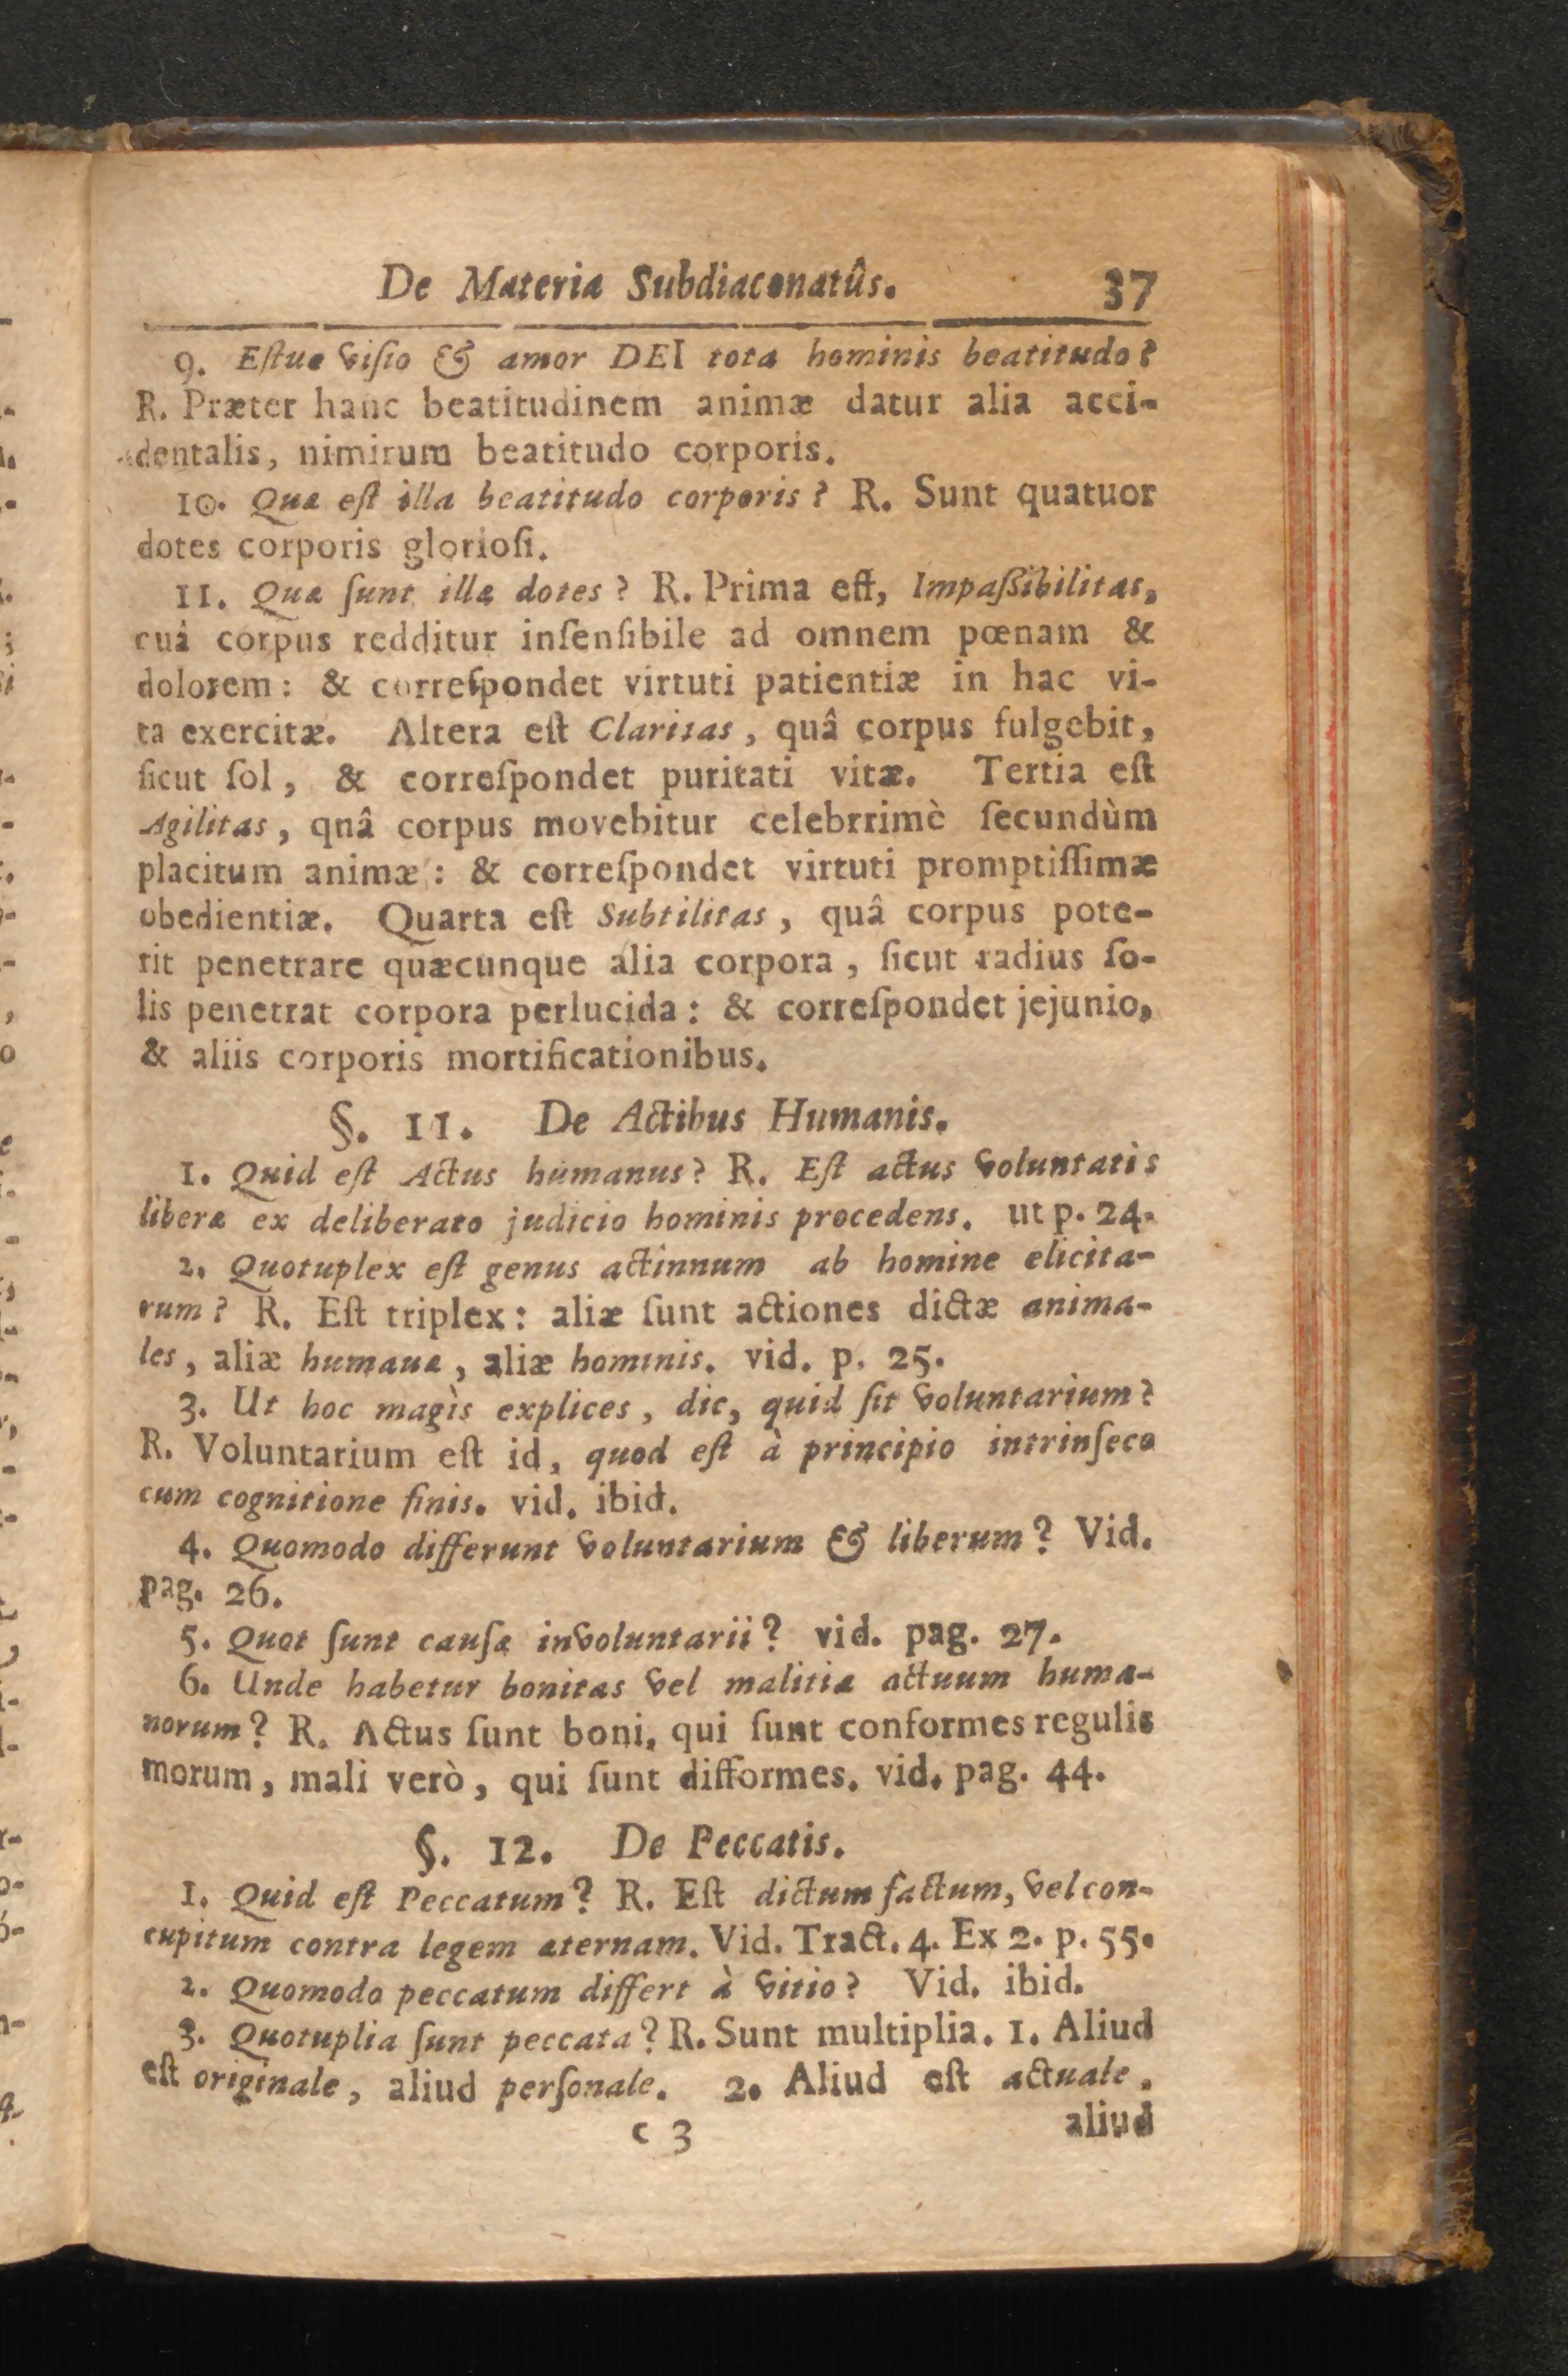 De Materia Subdiaconatûs. 37
9. Eſtue viſio & amor DEI tota hominis beatitudo?
R. Præter hanc beatitudinem animæ datur alia acci-
dentalis, nimirum beatitudo corporis.
10. Quæ eſt illa beatitudo corporis? R. Sunt quatuor
dotes corporis glorioſi.
11. Quæ ſunt illæ dotes? R. Prima eſt, Impaſſibilitas,
cuâ corpus redditur inſenſibile ad omnem pœnam &
dolorem: & correſpondet virtuti patientiæ in hac vi-
ta exercitæ. Altera eſt Claritas, quâ corpus fulgebit,
ſicut ſol, & correſpondet puritati vitæ. Tertia eſt
Agilitas, qnâ corpus movebitur celebrrimè ſecundùm
placitum animæ: & correſpondet virtuti promptiſſimæ
obedientiæ. Quarta eſt Subtilitas, quâ corpus pote-
rit penetrare quæcunque alia corpora, ſicut radius ſo-
lis penetrat corpora perlucida: & correſpondet jejunio,
& aliis corporis mortificationibus.
§. 11. De Actibus Humanis.
1. Quid eſt Actus humanus? R. Eſt actus voluntatis
liberæ ex deliberato judicio hominis procedens. ut p. 24.
2. Quotuplex eſt genus actinnum ab homine elicita-
rum? R. Eſt triplex: aliæ ſunt actiones dictæ anima-
les, aliæ humauæ, aliæ hominis. vid. p. 25.
3. Ut hoc magìs explices, dic, quid ſit voluntarium?
R. Voluntarium eſt id, quod eſt à principio intrinſeco
cum cognitione finis. vid. ibid.
4. Quomodo differunt voluntarium & liberum? Vid.
pag. 26.
5. Quot ſunt cauſæ involuntarii? vid. pag. 27.
6. Unde habetur bonitas vel malitia actuum huma-
norum? R. Actus ſunt boni, qui ſunt conformes regulis
morum, mali verò, qui ſunt difformes. vid. pag. 44.
§. 12. De Peccatis.
1. Quid eſt Peccatum? R. Eſt dictum factum, vel con-
cupitum contra legem æternam. Vid. Tract. 4. Ex 2. p. 55.
2. Quomodo peccatum differt à vitio? Vid. ibid.
3. Quotuplia ſunt peccata? R. Sunt multiplia. 1. Aliud
eſt originale, aliud perſonale. 2. Aliud eſt actuale,
c 3 aliud